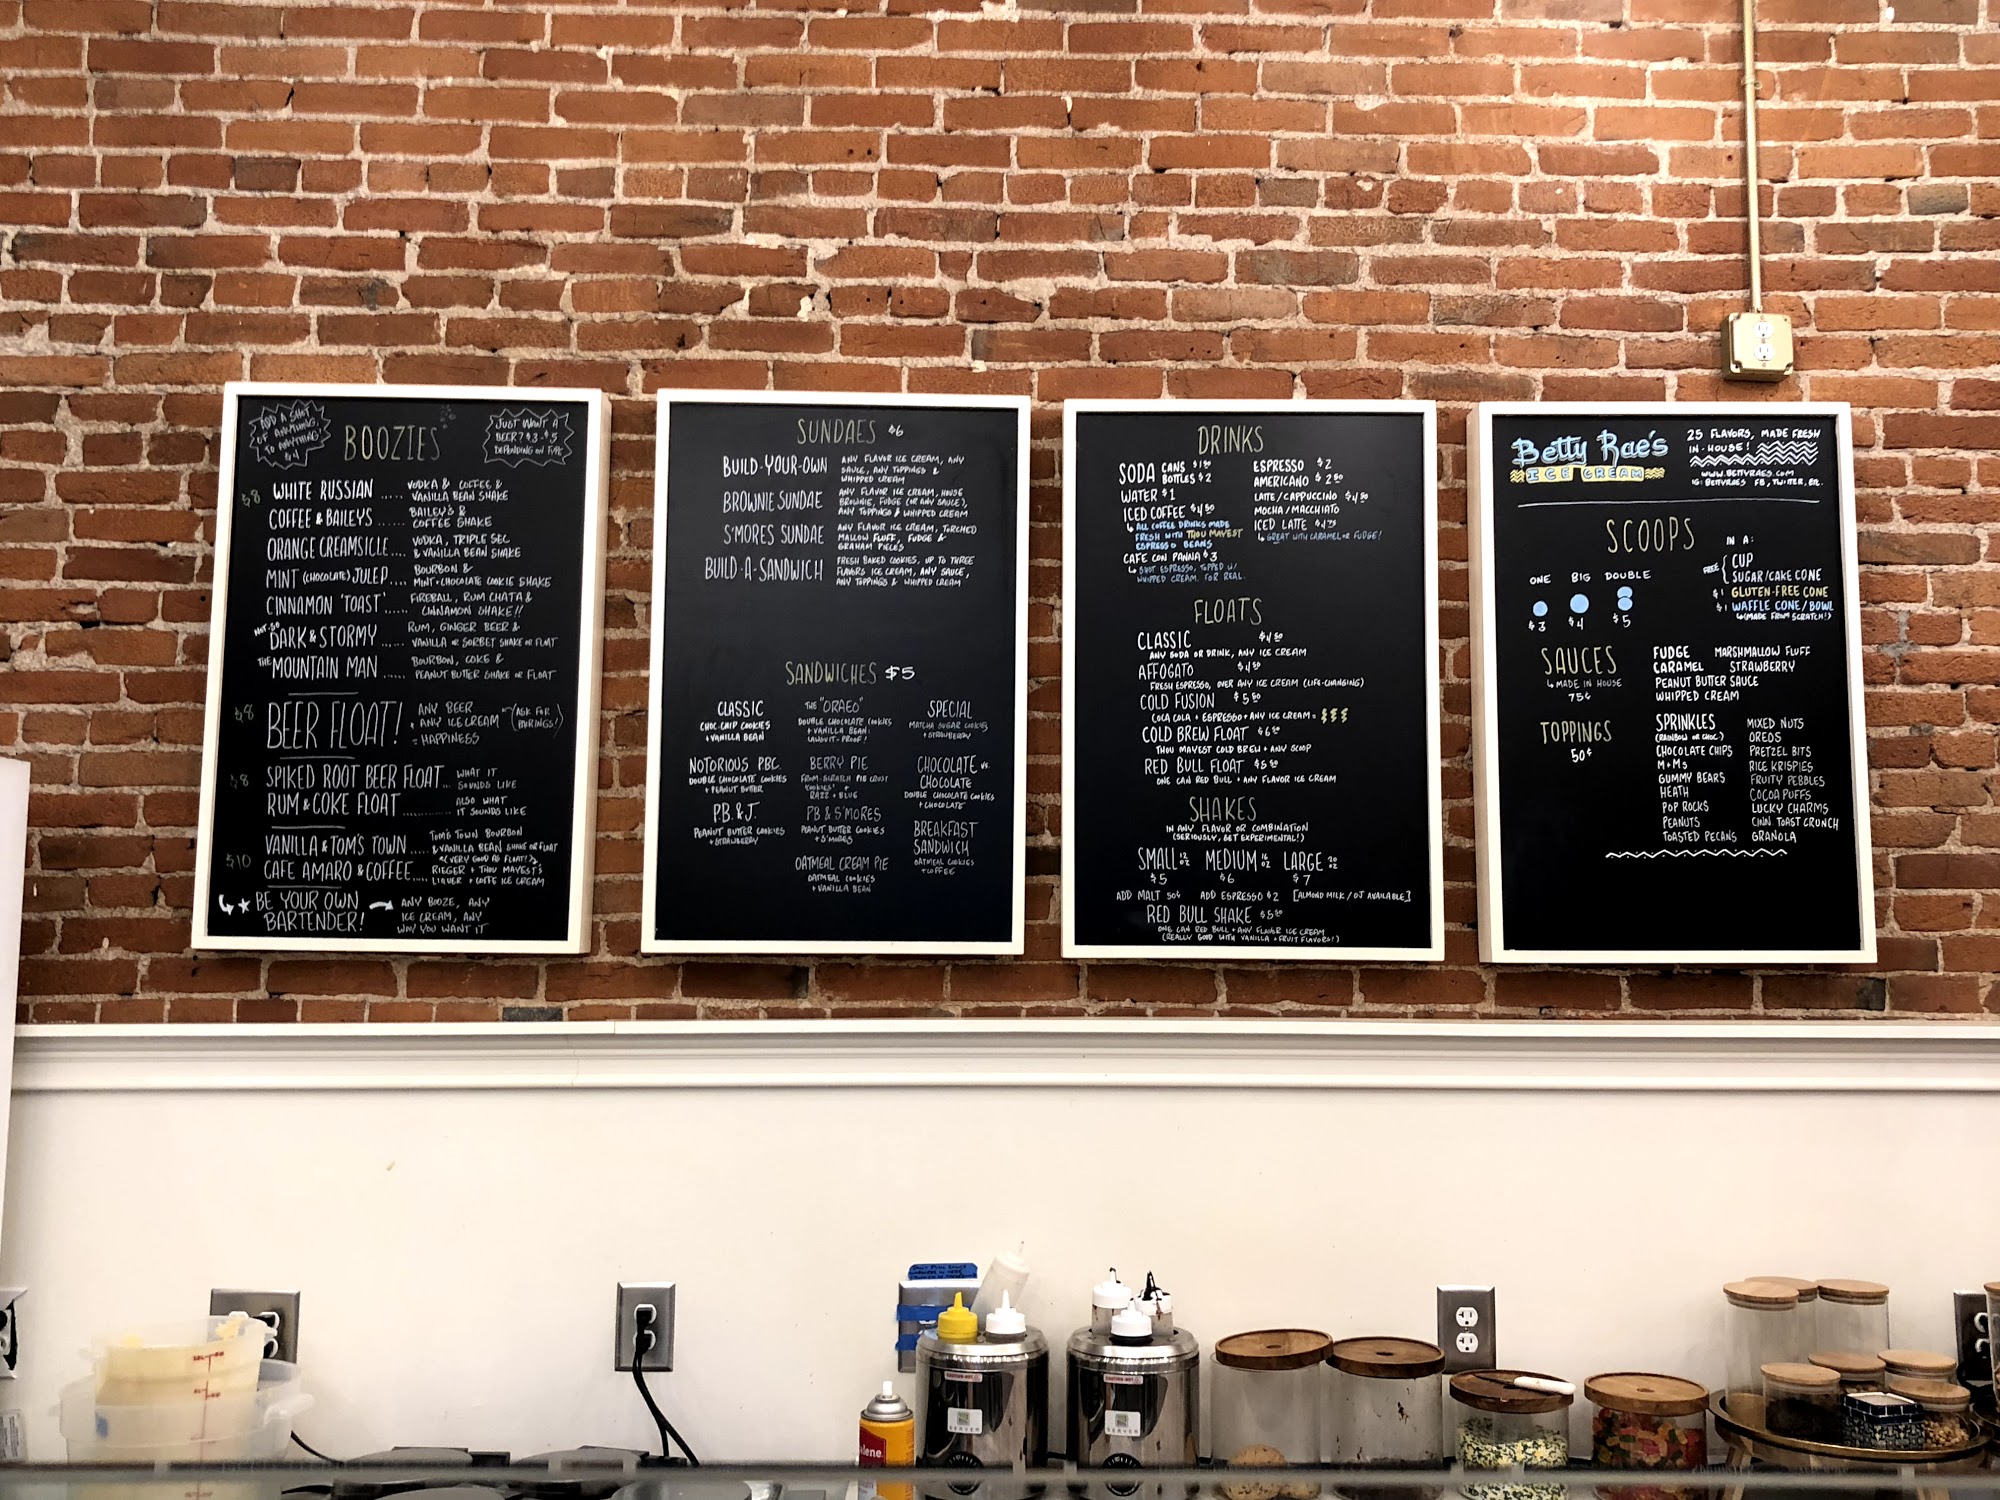 ADD A SHOT
OF ANYTHING,
TO ANYTHING!
$4
BOOZIES
JUST WANT A
BEER? $3-$5
DEPENDING ON TYPE
$8
WHITE RUSSIAN ..... VODKA & COFFEE &
VANILLA BEAN SHAKE
COFFEE & BAILEYS ...... BAILEY'S &
COFFEE SHAKE
ORANGE CREAMSICLE .... VODKA, TRIPLE SEC
& VANILLA BEAN SHAKE
MINT (CHOCOLATE) JULEP .... BOURBON &
MINT+CHOCOLATE COOKIE SHAKE
CINNAMON 'TOAST' ...... FIREBALL, RUM CHATA &
CINNAMON SHAKE!!
NOT-SO
DARK & STORMY ..... RUM, GINGER BEER &
VANILLA OR SORBET SHAKE OR FLOAT
THE MOUNTAIN MAN ...... BOURBON, COKE &
PEANUT BUTTER SHAKE OR FLOAT
$8
BEER FLOAT!
ANY BEER
+ ANY ICE CREAM
= HAPPINESS
(ASK FOR
PAIRINGS!)
$8
SPIKED ROOT BEER FLOAT... WHAT IT
SOUNDS LIKE
RUM & COKE FLOAT ............ ALSO WHAT
IT SOUNDS LIKE
$10
VANILLA & TOM'S TOWN ..... TOM'S TOWN BOURBON
& VANILLA BEAN SHAKE OR FLOAT
(VERY GOOD AS FLOAT!)
CAFE AMARO & COFFEE.... RIEGER + THOU MAYEST'S
LIQUER + COFFE ICE CREAM
BE YOUR OWN
BARTENDER!
ANY BOOZE, ANY
ICE CREAM, ANY
WAY YOU WANT IT
SUNDAES $6
BUILD-YOUR-OWN ANY FLAVOR ICE CREAM, ANY
SAUCE, ANY TOPPINGS &
WHIPPED CREAM
BROWNIE SUNDAE ANY FLAVOR ICE CREAM, HOUSE
BROWNIE, FUDGE (OR ANY SAUCE),
ANY TOPPINGS & WHIPPED CREAM
S'MORES SUNDAE ANY FLAVOR ICE CREAM, TORCHED
MALLOW FLUFF, FUDGE &
GRAHAM PIECES
BUILD-A-SANDWICH FRESH BAKED COOKIES, UP TO THREE
FLAVORS ICE CREAM, ANY SAUCE,
ANY TOPPINGS & WHIPPED CREAM
SANDWICHES $5
CLASSIC
CHOC-CHIP COOKIES
+ VANILLA BEAN
THE "ORAEO"
DOUBLE CHOCOLATE COOKIES
+ VANILLA BEAN:
LAWSUIT-PROOF!
SPECIAL
MATCHA SUGAR COOKIES
+ STRAWBERRY
NOTORIOUS PBC.
DOUBLE CHOCOLATE COOKIES
+ PEANUT BUTTER
BERRY PIE
FROM-SCRATCH PIE CRUST
COOKIES! +
RAZZ + BLUE
CHOCOLATE VS.
CHOCOLATE
DOUBLE CHOCOLATE COOKIES
+ CHOCOLATE
P.B. & J.
PEANUT BUTTER COOKIES
+ STRAWBERRY
PB & S'MORES
PEANUT BUTTER COOKIES
+ S'MORES
BREAKFAST
SANDWICH
OATMEAL COOKIES
+ COFFEE
OATMEAL CREAM PIE
OATMEAL COOKIES
+ VANILLA BEAN
DRINKS
SODA CANS $1.50
BOTTLES $2
WATER $1
ICED COFFEE $4.50
ALL COFFEE DRINKS MADE
FRESH WITH THOU MAYEST
ESPRESSO BEANS
CAFE CON PANNA $3
SHOT ESPRESSO, TOPPED W/
WHIPPED CREAM. FOR REAL.
ESPRESSO $2
AMERICANO $2.50
LATTE/CAPPUCCINO $4.50
MOCHA/MACCHIATO
ICED LATTE $4.75
GREAT WITH CARAMEL OR FUDGE!
FLOATS
CLASSIC $4.50
ANY SODA OR DRINK, ANY ICE CREAM
AFFOGATO $4.50
FRESH ESPRESSO, OVER ANY ICE CREAM (LIFE-CHANGING)
COLD FUSION $5.50
COCA COLA + ESPRESSO + ANY ICE CREAM =
COLD BREW FLOAT $6.50
THOU MAYEST COLD BREW + ANY SCOOP
RED BULL FLOAT $5.50
ONE CAN RED BULL + ANY FLAVOR ICE CREAM
SHAKES
IN ANY FLAVOR OR COMBINATION
(SERIOUSLY, GET EXPERIMENTAL!)
SMALL 12 OZ MEDIUM 16 OZ LARGE 20 OZ
$5 $6 $7
ADD MALT 50¢ ADD ESPRESSO $2 [ALMOND MILK/OJ AVAILABLE]
RED BULL SHAKE $5.50
ONE CAN RED BULL + ANY FLAVOR ICE CREAM
(REALLY GOOD WITH VANILLA + FRUIT FLAVORS!)
Betty Rae's
ICE CREAM
25 FLAVORS, MADE FRESH
IN-HOUSE!
WWW.BETTYRAES.COM
IG: BETTYRAES FB, TWITTER, ETC.
SCOOPS
IN A:
FREE { CUP
SUGAR/CAKE CONE
$1 GLUTEN-FREE CONE
$1 WAFFLE CONE/BOWL
(MADE FROM SCRATCH!)
ONE BIG DOUBLE
$3 $4 $5
SAUCES
MADE IN HOUSE
75¢
FUDGE MARSHMALLOW FLUFF
CARAMEL STRAWBERRY
PEANUT BUTTER SAUCE
WHIPPED CREAM
TOPPINGS
50¢
SPRINKLES
(RAINBOW OR CHOC.)
CHOCOLATE CHIPS
M+Ms
GUMMY BEARS
HEATH
POP ROCKS
PEANUTS
TOASTED PECANS
MIXED NUTS
OREOS
PRETZEL BITS
RICE KRISPIES
FRUITY PEBBLES
COCOA PUFFS
LUCKY CHARMS
CINN TOAST CRUNCH
GRANOLA
CAUTION-HOT
SERVER
CAUTION-HOT
SERVER